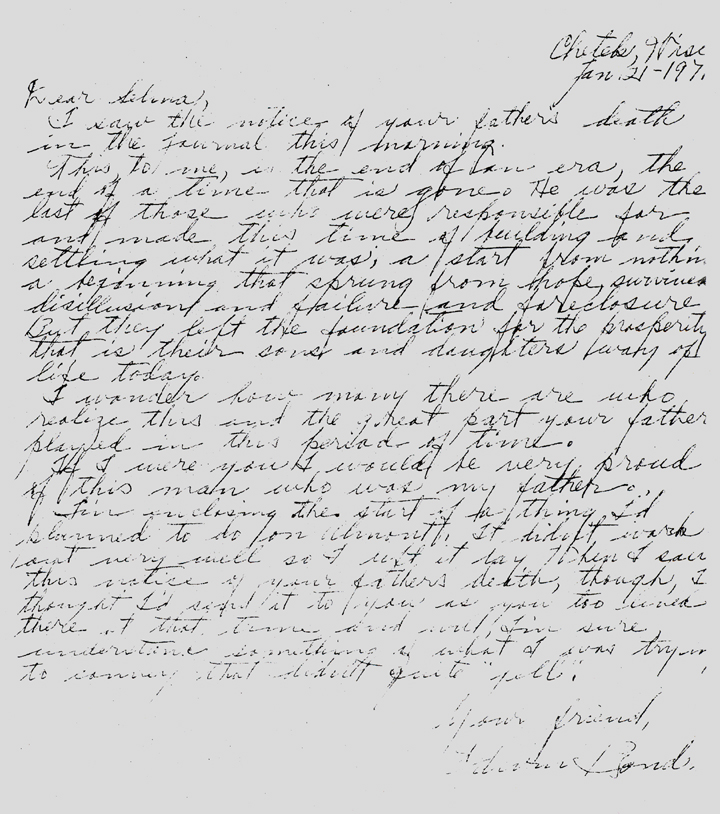 Chetek, Wisc
Jan. 21-197
Dear Selma,
I saw the notice of your father's death
in the Journal this morning.
This, to me, is the end of an era, the
end of a time that is gone. He was the
last of those who were responsible for
and made this time of building and
settling what it was, a start from nothin
a beginning that sprung from hope, survived
disillusion and failure and foreclosure
But they left the foundation for the prosperity
that is their sons and daughters way of
life today.
I wonder how many there are who
realize this and the great part your father
played in this period of time.
If I were you I would be very proud
of this man who was my father.
I'm enclosing the start of a thing I'd
planned to do on Almont. It didn't work
out very well so I left it lay. When I saw
this notice of your father's death, though, I
thought I'd send it to you as you too lived
there at that time and will, I'm sure,
understand something of what I was tryin
to convey that didn't quite "jell".
Your friend,
Bond.